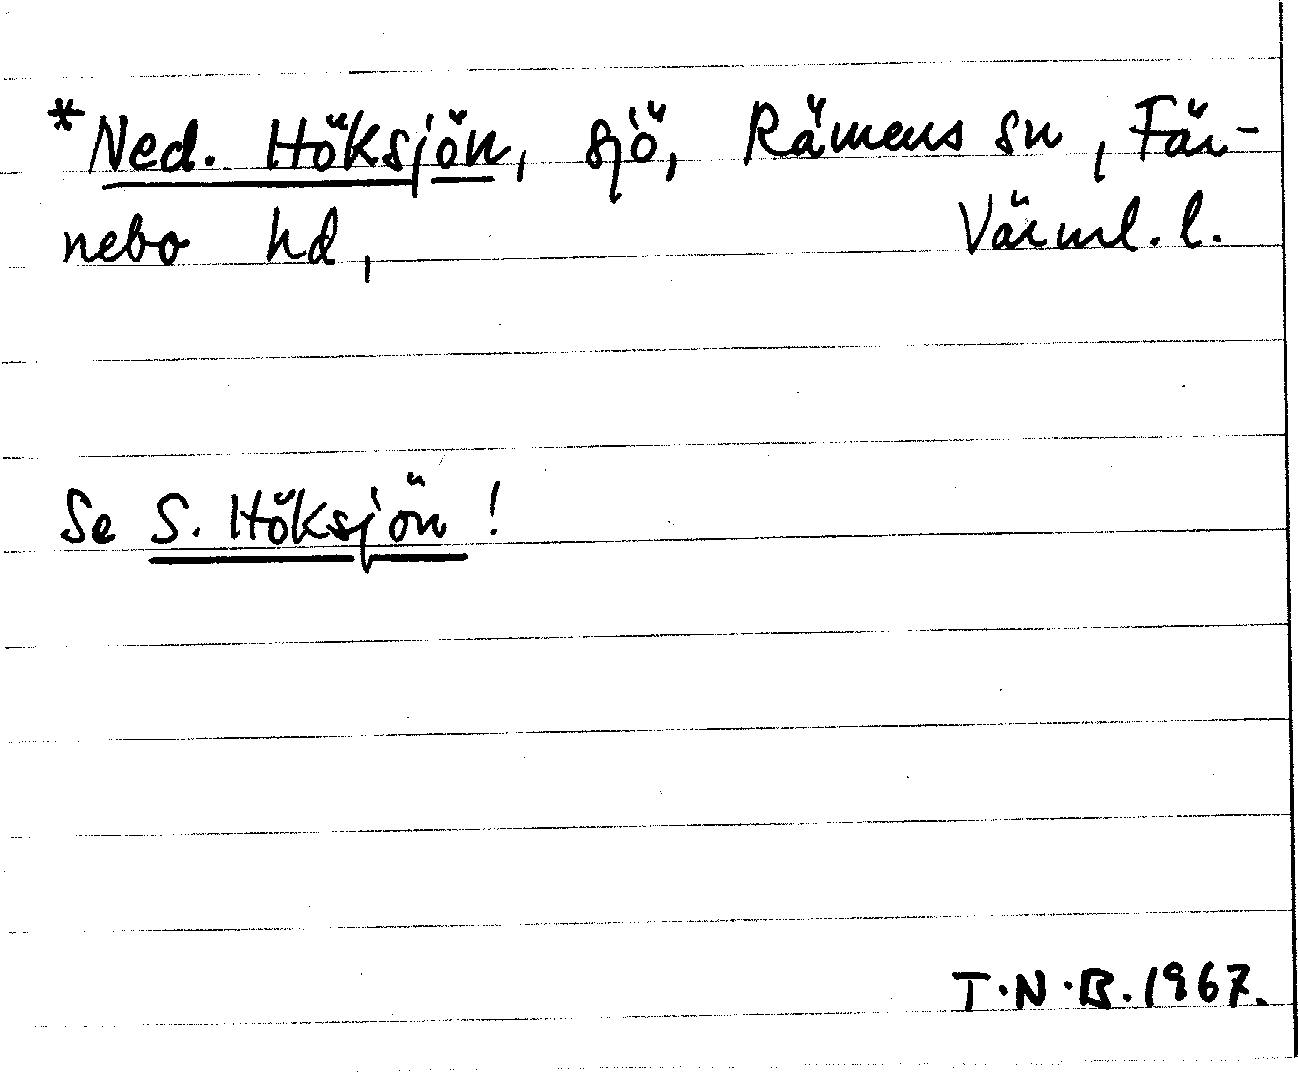 *Ned. Höksjön, sjö, Rämens sn, Fär-
nebo hd, Värml. l.
Se S. Höksjön!
T.N.B. 1967.